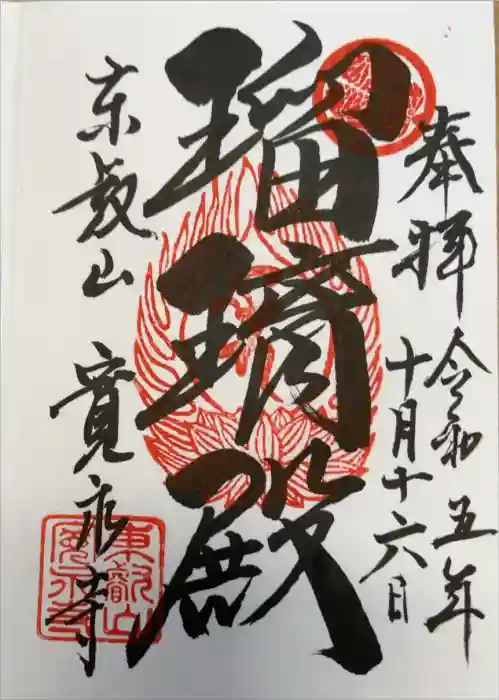 奉拝
令和五年
十月十六日
瑠璃殿
東叡山 寛永寺
東叡山
寛永寺